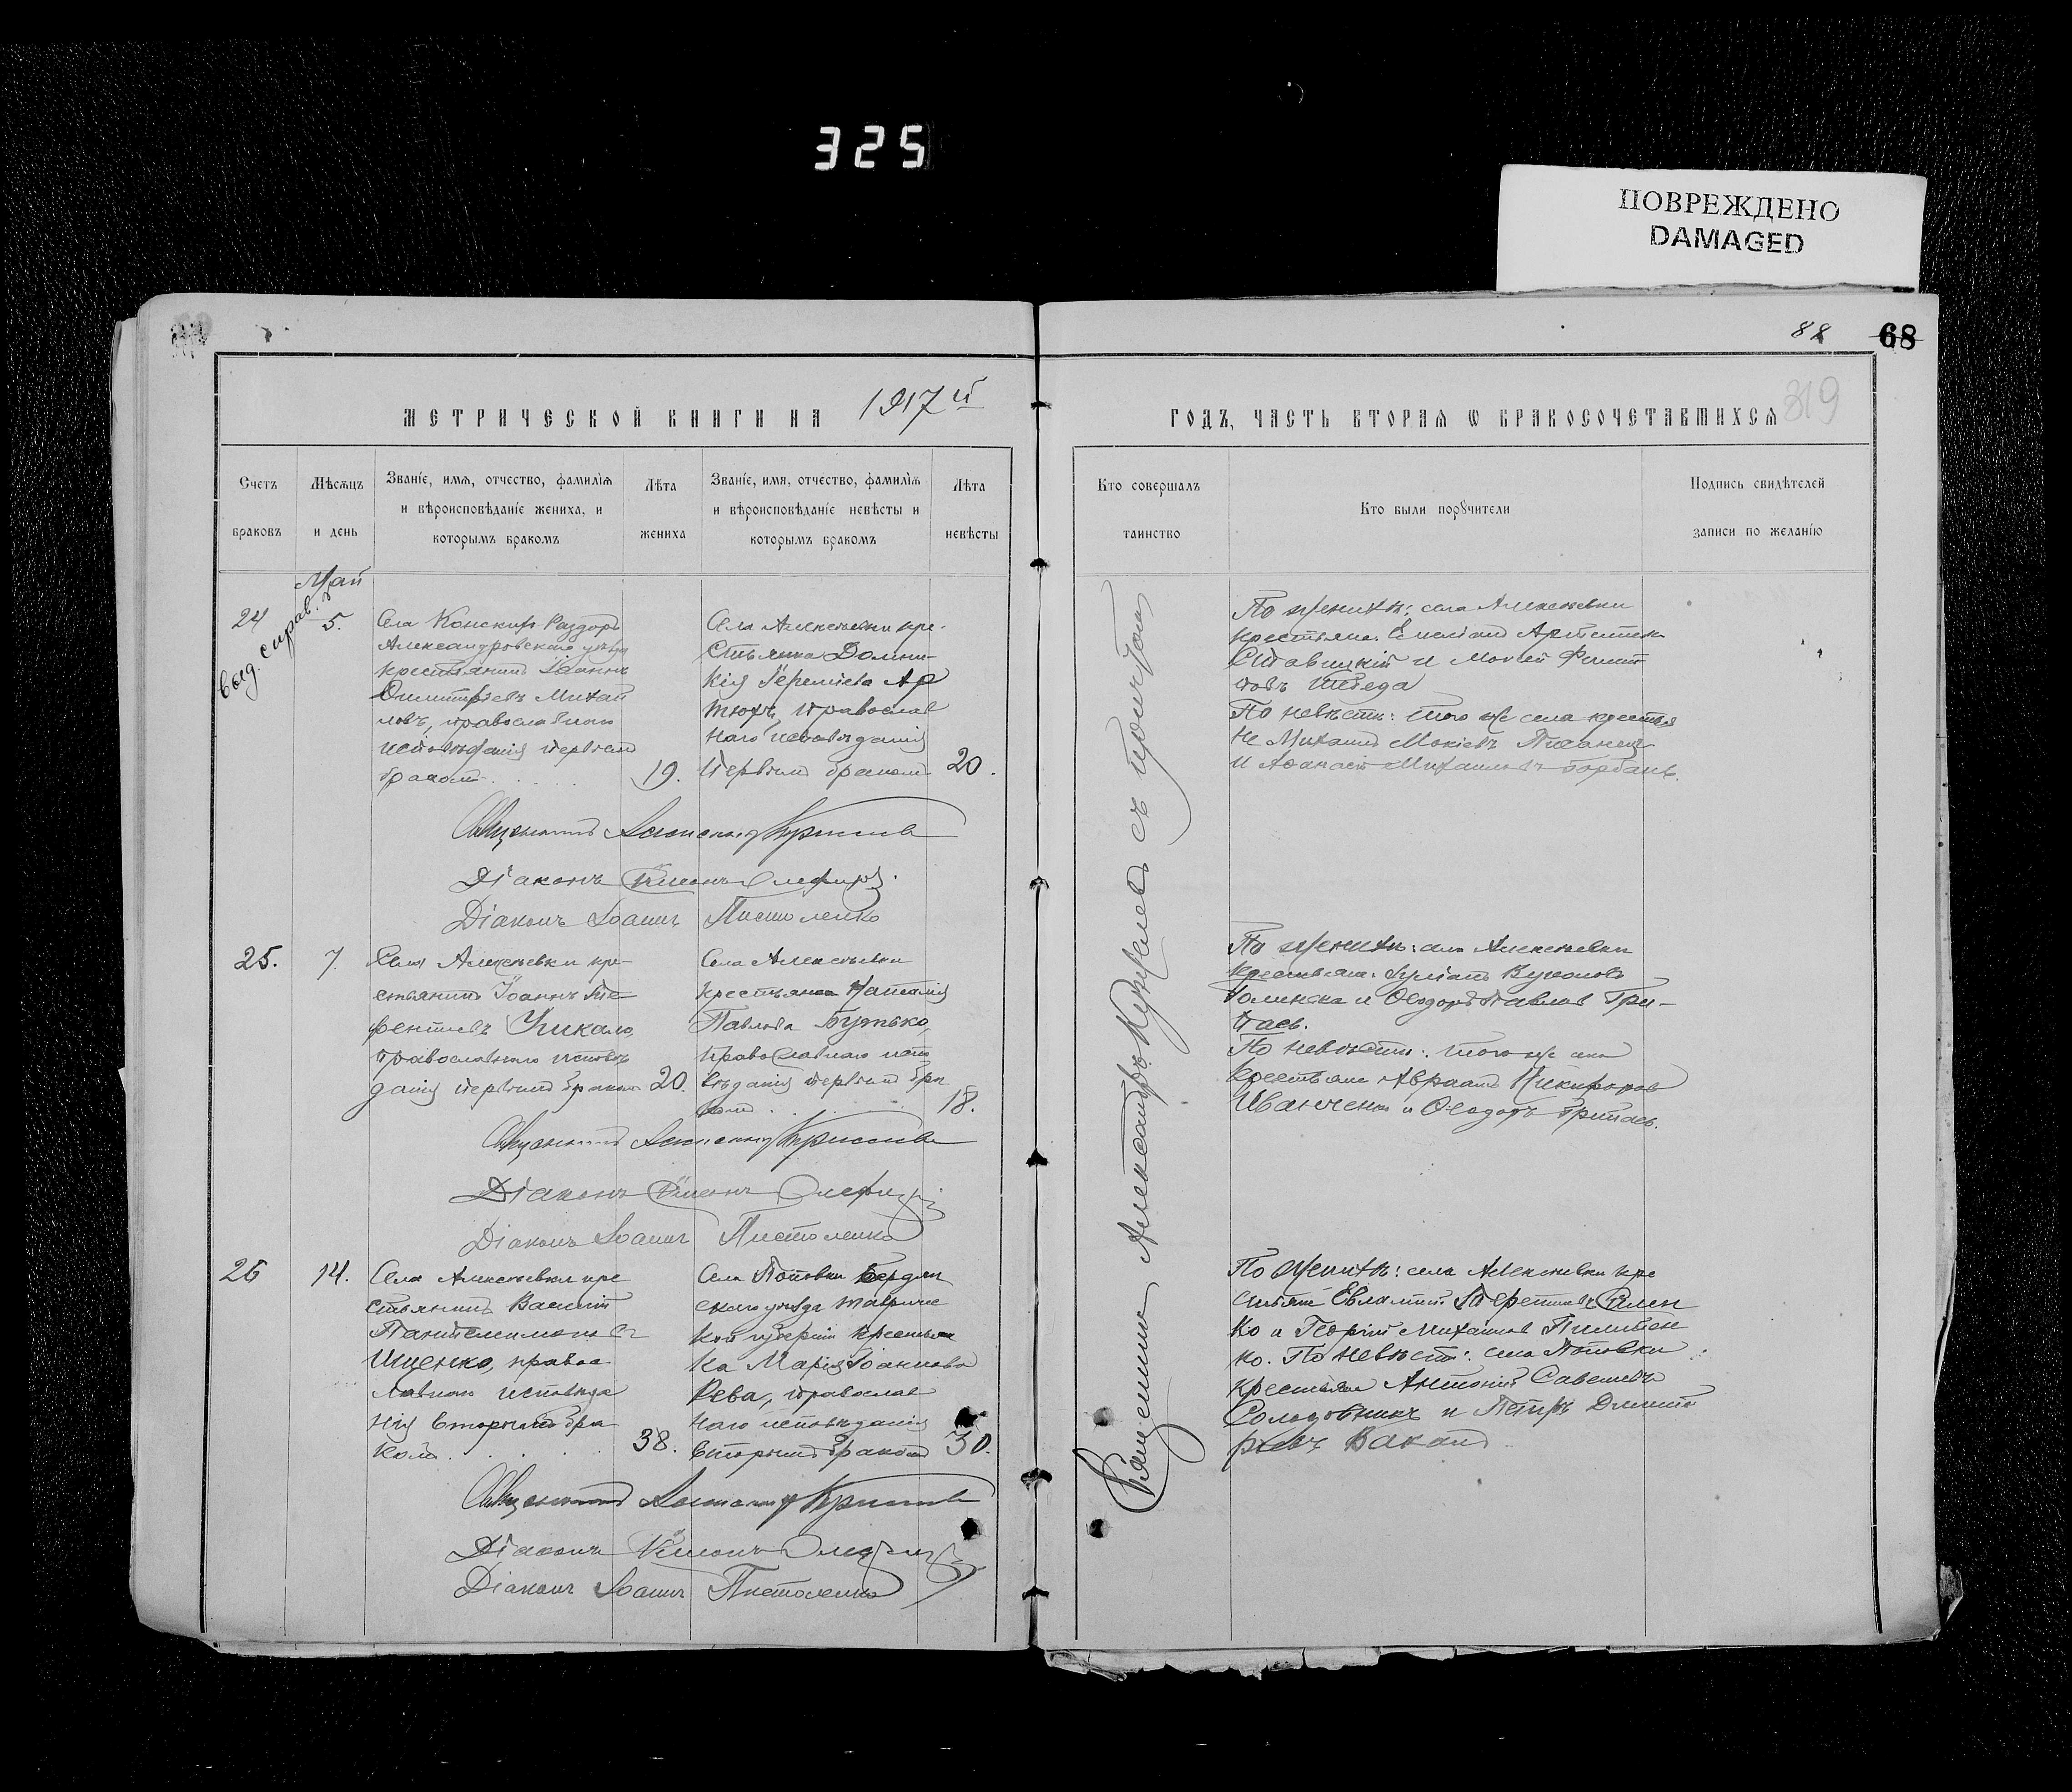 325
ПОВРЕЖДЕНО
DAMAGED
88
68
319
МЕТРИЧЕСКОЙ КНИГИ НА 1917й
ГОДЪ, ЧАСТЬ ВТОРАЯ Ѡ БРАКОСОЧЕТАВШИХСЯ
Счетъ
браковъ
Мѣсяцъ
и день
Званіе, имя, отчество, фамилія
и вѣроисповѣданіе жениха, и
которымъ бракомъ
Лѣта
жениха
Званіе, имя, отчество, фамилія
и вѣроисповѣданіе невѣсты и
которымъ бракомъ
Лѣта
невѣсты
Кто совершалъ
таинство
Кто были порꙋчители
Подпись свидѣтелей
записи по желанію
Май
24
выд. справ.
5.
Села Конскихъ Раздоръ
Александровскаго уѣзда
крестьянинъ Іоаннъ
Димитріевъ Михай
ловъ, православнаго
исповѣданія первымъ
бракомъ
19.
Села Алексѣевки кре-
стьянка Домни-
кія Іереміева Ар
тюхъ, православ
наго исповѣданія
первымъ бракомъ
20.
По женихѣ: села Алексѣевки
крестьяне
Ставицкій и Моисей
Шведа
По невѣстѣ: того же села крестья
не Михаилъ Мокіевъ Писанец
и Афанасій Михаиловъ Горбань.
Священникъ
Діаконъ Симонъ
Діаконъ Іоаннъ Пистоленко
25.
7.
Села Алексѣевки кре-
стьянинъ Іоаннъ Те-
рентіевъ Чикало,
православнаго исповѣ
данія первымъ бракомъ
20.
Села Алексѣевки
крестьянка Наталія
Павлова Бутько,
православнаго испо
вѣданія первымъ бра
комъ
18.
По женихѣ: села Алексѣевки
крестьяне:
и Ѳеодоръ Павловъ Гри-
пась.
По невѣстѣ: того же села
крестьяне Авраамъ Никифоровъ
Иванченко и Ѳеодоръ Грипась.
Священникъ
Діаконъ Симонъ
Діаконъ Іоаннъ Пистоленко
26
14.
Села Алексѣевки кре
стьянинъ Василій
Пантелеимоновъ
Ищенко, правос
лавнаго исповѣда
нія вторымъ бра
комъ
38.
Села Поповки Бердян
скаго уѣзда Тавриче
кой губерніи крестьян
ка Марія Іоаннова
Рева, православ
наго исповѣданія
вторымъ бракомъ
30.
По женихѣ: села Алексѣевки кре
стьяне Евлампій Терентіевъ
ко и Георгій Михаиловъ Пилипен
ко. По невѣстѣ: села Поповки
крестьяне Антоній Савельевъ
Солодовникъ и Петръ Димит
ріевъ
Священникъ
Діаконъ Симонъ
Діаконъ Іоаннъ Пистоленко
Священникъ Александръ съ причтомъ